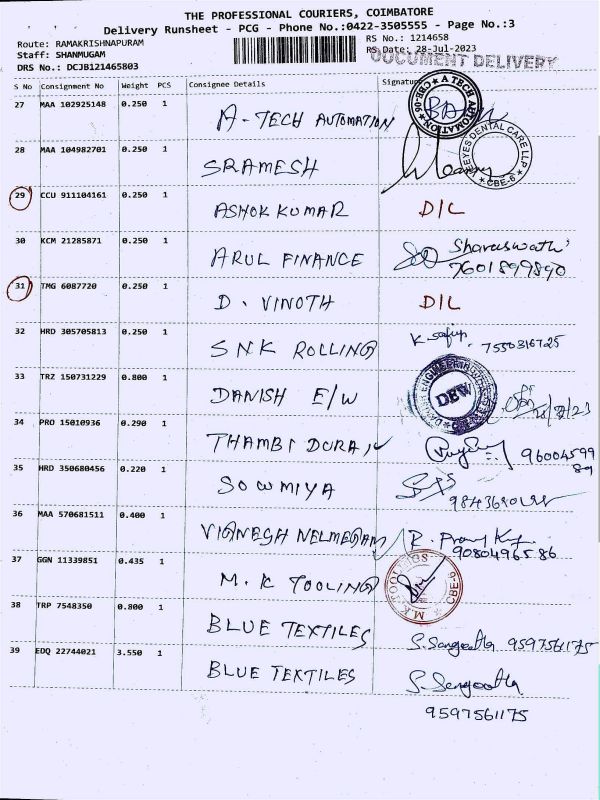 THE PROFESSIONAL COURIERS, COIMBATORE
Delivery Runsheet - PCG - Phone No.:0422-3505555 - Page No.:3
Route: RAMAKRISHNAPURAM
RS No.: 1214658
Staff: SHANMUGAM
RS Date: 28-Jul-2023
DOCUMENT DELIVERY
DRS No.: DCJB121465803
S No Consignment No Weight PCS Consignee Details Signature
27 MAA 102925148 0.250 1 A-TECH AUTOMATION
A TECH AUTOMATION CBE-06
28 MAA 104982701 0.250 1 SRAMESH
EYES DENTAL CARE LLP CBE-6
29 CCU 911104161 0.250 1 ASHOK KUMAR D/L
30 KCM 21285871 0.250 1 ARUL FINANCE
7601899890
31 TMG 6087720 0.250 1 D. VINOTH D/L
32 HRD 305705813 0.250 1 SNK ROLLING 7550316725
33 TRZ 150731229 0.800 1 DANISH E/W
DEW
34 PRO 15010936 0.290 1 THAMBI DURAI
96004599
35 HRD 350680456 0.220 1 SOWMIYA
36 MAA 570681511 0.400 1 VIGNESH NELMEGAM
9080496586
37 GGN 11339851 0.435 1 M.K TOOLING
38 TRP 7548350 0.800 1 BLUE TEXTILES S. Sangeetha 9597561175
39 EDQ 22744021 3.550 1 BLUE TEXTILES S. Sangeetha
9597561175